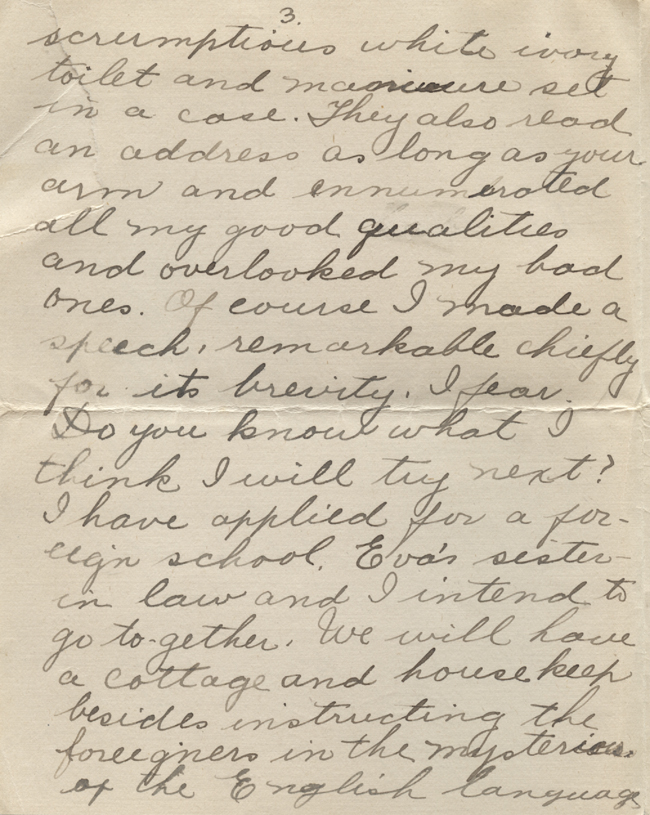 3.
scrumptious white ivory
toilet and manicure set
in a case. They also read
an address as long as your
arm and ennumerated
all my good qualities
and overlooked my bad
ones. Of course I made a
speech, remarkable chiefly
for its brevity, I fear.
Do you know what I
think I will try next?
I have applied for a for-
eign school. Eva's sister-
in law and I intend to
go to-gether. We will have
a cottage and housekeep
besides instructing the
foreigners in the mysteries
of the English language